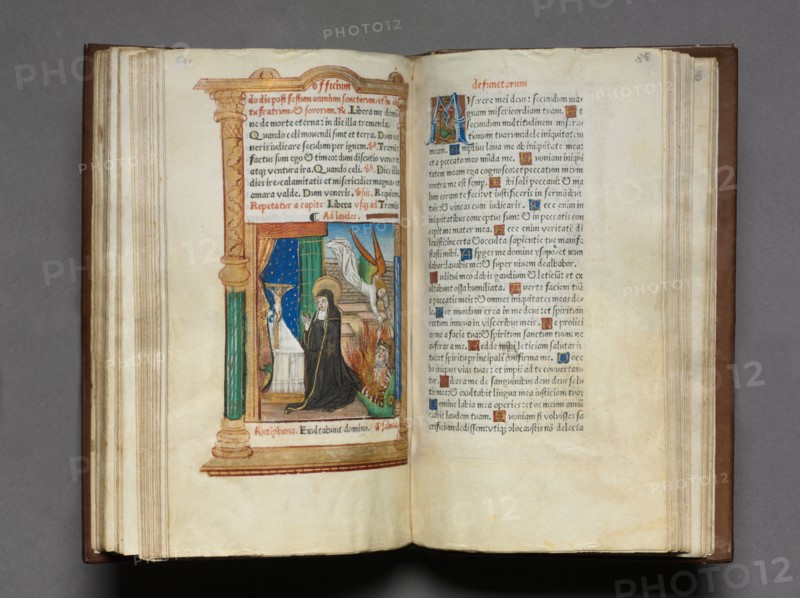 officium
do die post festum omnium sanctorum: et in
tu fratrum/& sororum. Re. Libera me domi
ne de morte eterna: in die illa tremenda.
Quando celi mouendi sunt et terra. Dum ve
neris iudicare seculum per ignem. Tremēs
factus sum ego & timeo: dum discutio venerit
atq; ventura ira. Quando celi. Dies illa
dies ire: calamitatis et miserie: dies magna et
amara valde. Dum veneris. Requiem
Repetatur a capite Libera vsq; ad Tremēs
Ad laudes.
Antiphona. Exultabunt domino.
defunctorum
Miserere mei deus: secundum ma
gnam misericordiam tuam. Et
secundum multitudinem misera
tionum tuarum: dele iniquitatem
meam. Amplius laua me ab iniquitate mea:
et a peccato meo mūda me. Quoniam iniqui
tatem meam ego cognosco: et peccatum meum
contra me est semp. Tibi soli peccaui: & ma
lum coram te feci: vt iustificeris in sermōibus
tuis: & vincas cum iudicaris. Ecce enim in
iniquitatibus conceptus sum: & in peccatis con
cepit me mater mea. Ecce enim veritatē di
lexisti: incerta & occulta sapientie tue manife
stasti mihi. Asperges me domine ysopo: et mun
dabor: lauabis me: & super niuem dealbabor.
Auditui meo dabis gaudium & leticiā: et ex
ultabunt ossa humiliata. Auerte faciem tuā
a peccatis meis: & omnes iniquitates meas de
le. Cor mundum crea in me deus: et spiritum
rectum innoua in visceribus meis. Ne proiici
as me a facie tua: & spiritum sanctum tuum ne
auferas a me. Redde mihi leticiam salutaris
tui: et spiritu principali confirma me. Doce
bo iniquos vias tuas: et impii ad te conuerten
tur. Libera me de sanguinibus deus deus salu
tis mee: & exultabit lingua mea iusticiam tuā
Domine labia mea aperies: et os meum annū
ciabit laudem tuam. Quoniam si voluisses sa
crificium dedissem: vtiq; olocaustis nō delecta
PHOTO12